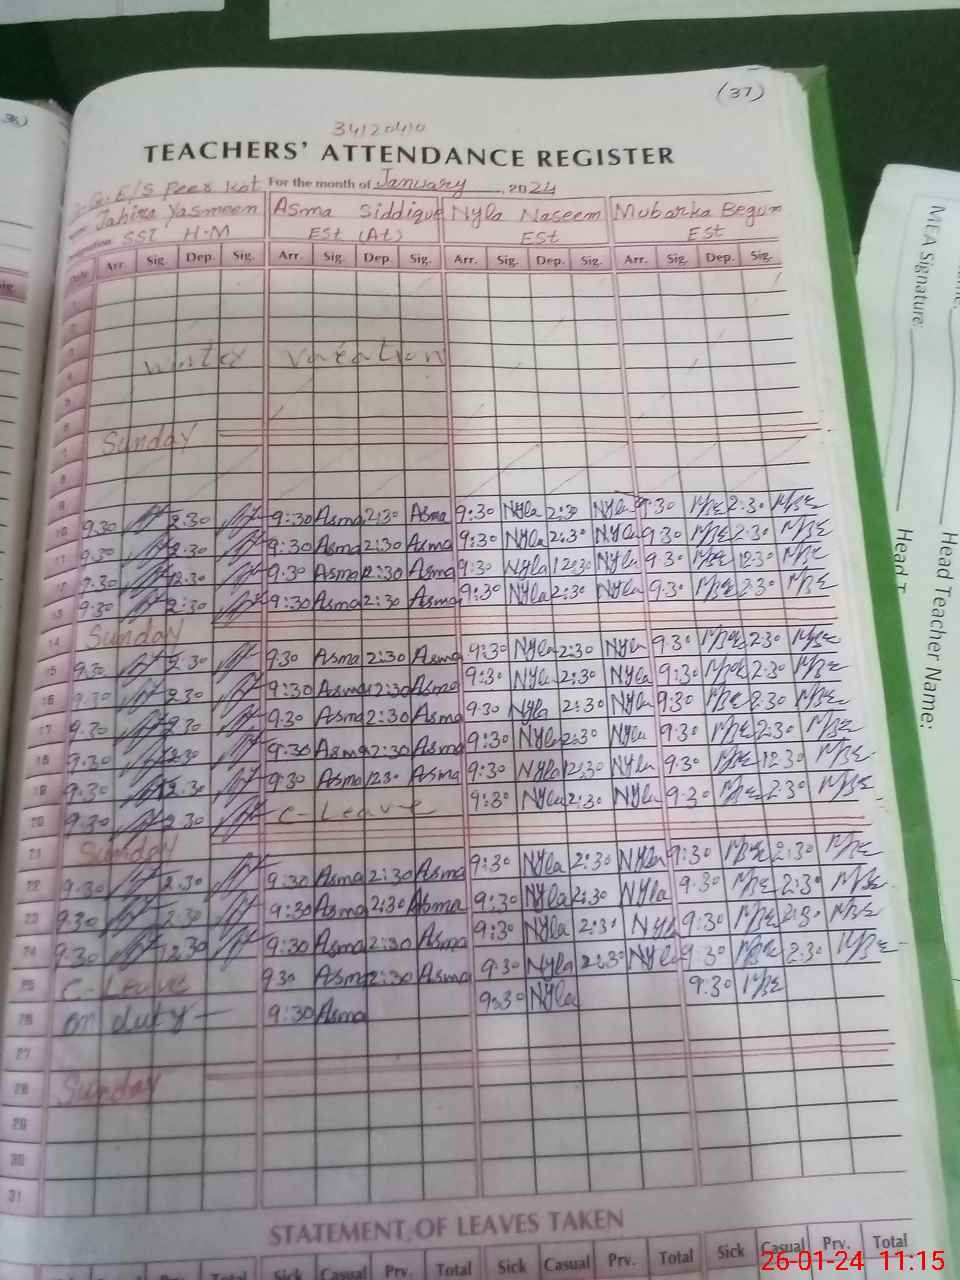 (37)
34120410
TEACHERS' ATTENDANCE REGISTER
G.E/S Peer Kot For the month of January, 2024
Tahira Yasmeen Asma Siddique Nyla Naseem Mubarka Begum
SST H-M ESt (At) ESt ESt
Date Arr. Sig. Dep. Sig. Arr. Sig. Dep. Sig. Arr. Sig. Dep. Sig. Arr. Sig. Dep. Sig.
1
2
3 Winter Vacation
4
5
6
7 Sunday
8
9
10 9:30 2:30 9:30 Asma 2:30 Asma 9:30 Nyla 2:30 Nyla 9:30 2:30
11 9:30 2:30 9:30 Asma 2:30 Asma 9:30 Nyla 2:30 Nyla 9:30 2:30
12 9:30 12:30 9:30 Asma 12:30 Asma 9:30 Nyla 12:30 Nyla 9:30 12:30
13 9:30 2:30 9:30 Asma 2:30 Asma 9:30 Nyla 2:30 Nyla 9:30 2:30
14 Sunday
15 9:30 2:30 9:30 Asma 2:30 Asma 9:30 Nyla 2:30 Nyla 9:30 2:30
16 9:30 2:30 9:30 Asma 2:30 Asma 9:30 Nyla 2:30 Nyla 9:30 2:30
17 9:30 2:30 9:30 Asma 2:30 Asma 9:30 Nyla 2:30 Nyla 9:30 2:30
18 9:30 2:30 9:30 Asma 2:30 Asma 9:30 Nyla 2:30 Nyla 9:30 2:30
19 9:30 12:30 9:30 Asma 12:30 Asma 9:30 Nyla 12:30 Nyla 9:30 12:30
20 9:30 2:30 C-Leave 9:30 Nyla 2:30 Nyla 9:30 2:30
21 Sunday
22 9:30 2:30 9:30 Asma 2:30 Asma 9:30 Nyla 2:30 Nyla 9:30 2:30
23 9:30 2:30 9:30 Asma 2:30 Asma 9:30 Nyla 2:30 Nyla 9:30 2:30
24 9:30 12:30 9:30 Asma 2:30 Asma 9:30 Nyla 2:30 Nyla 9:30 2:30
25 C-Leave 9:30 Asma 2:30 Asma 9:30 Nyla 2:30 Nyla 9:30 2:30
26 on duty 9:30 Asma 9:30 Nyla 9:30
27
28 Sunday
29
30
31
STATEMENT OF LEAVES TAKEN
Total Sick Casual Prv. Total Sick Casual Prv. Total Sick Casual Prv. Total
MEA Signature
Head Teacher Name:
Head T
26-01-24 11:15